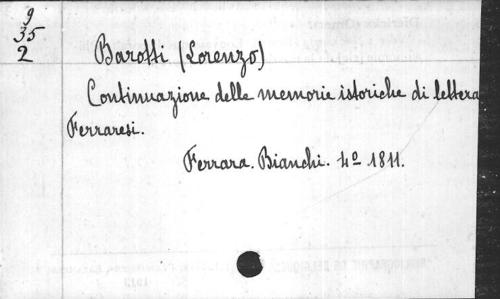 9
35
2
Barotti (Lorenzo)
Continuazione delle memorie istoriche di lettera
Ferraresi.
Ferrara. Bianchi. 4º 1811.